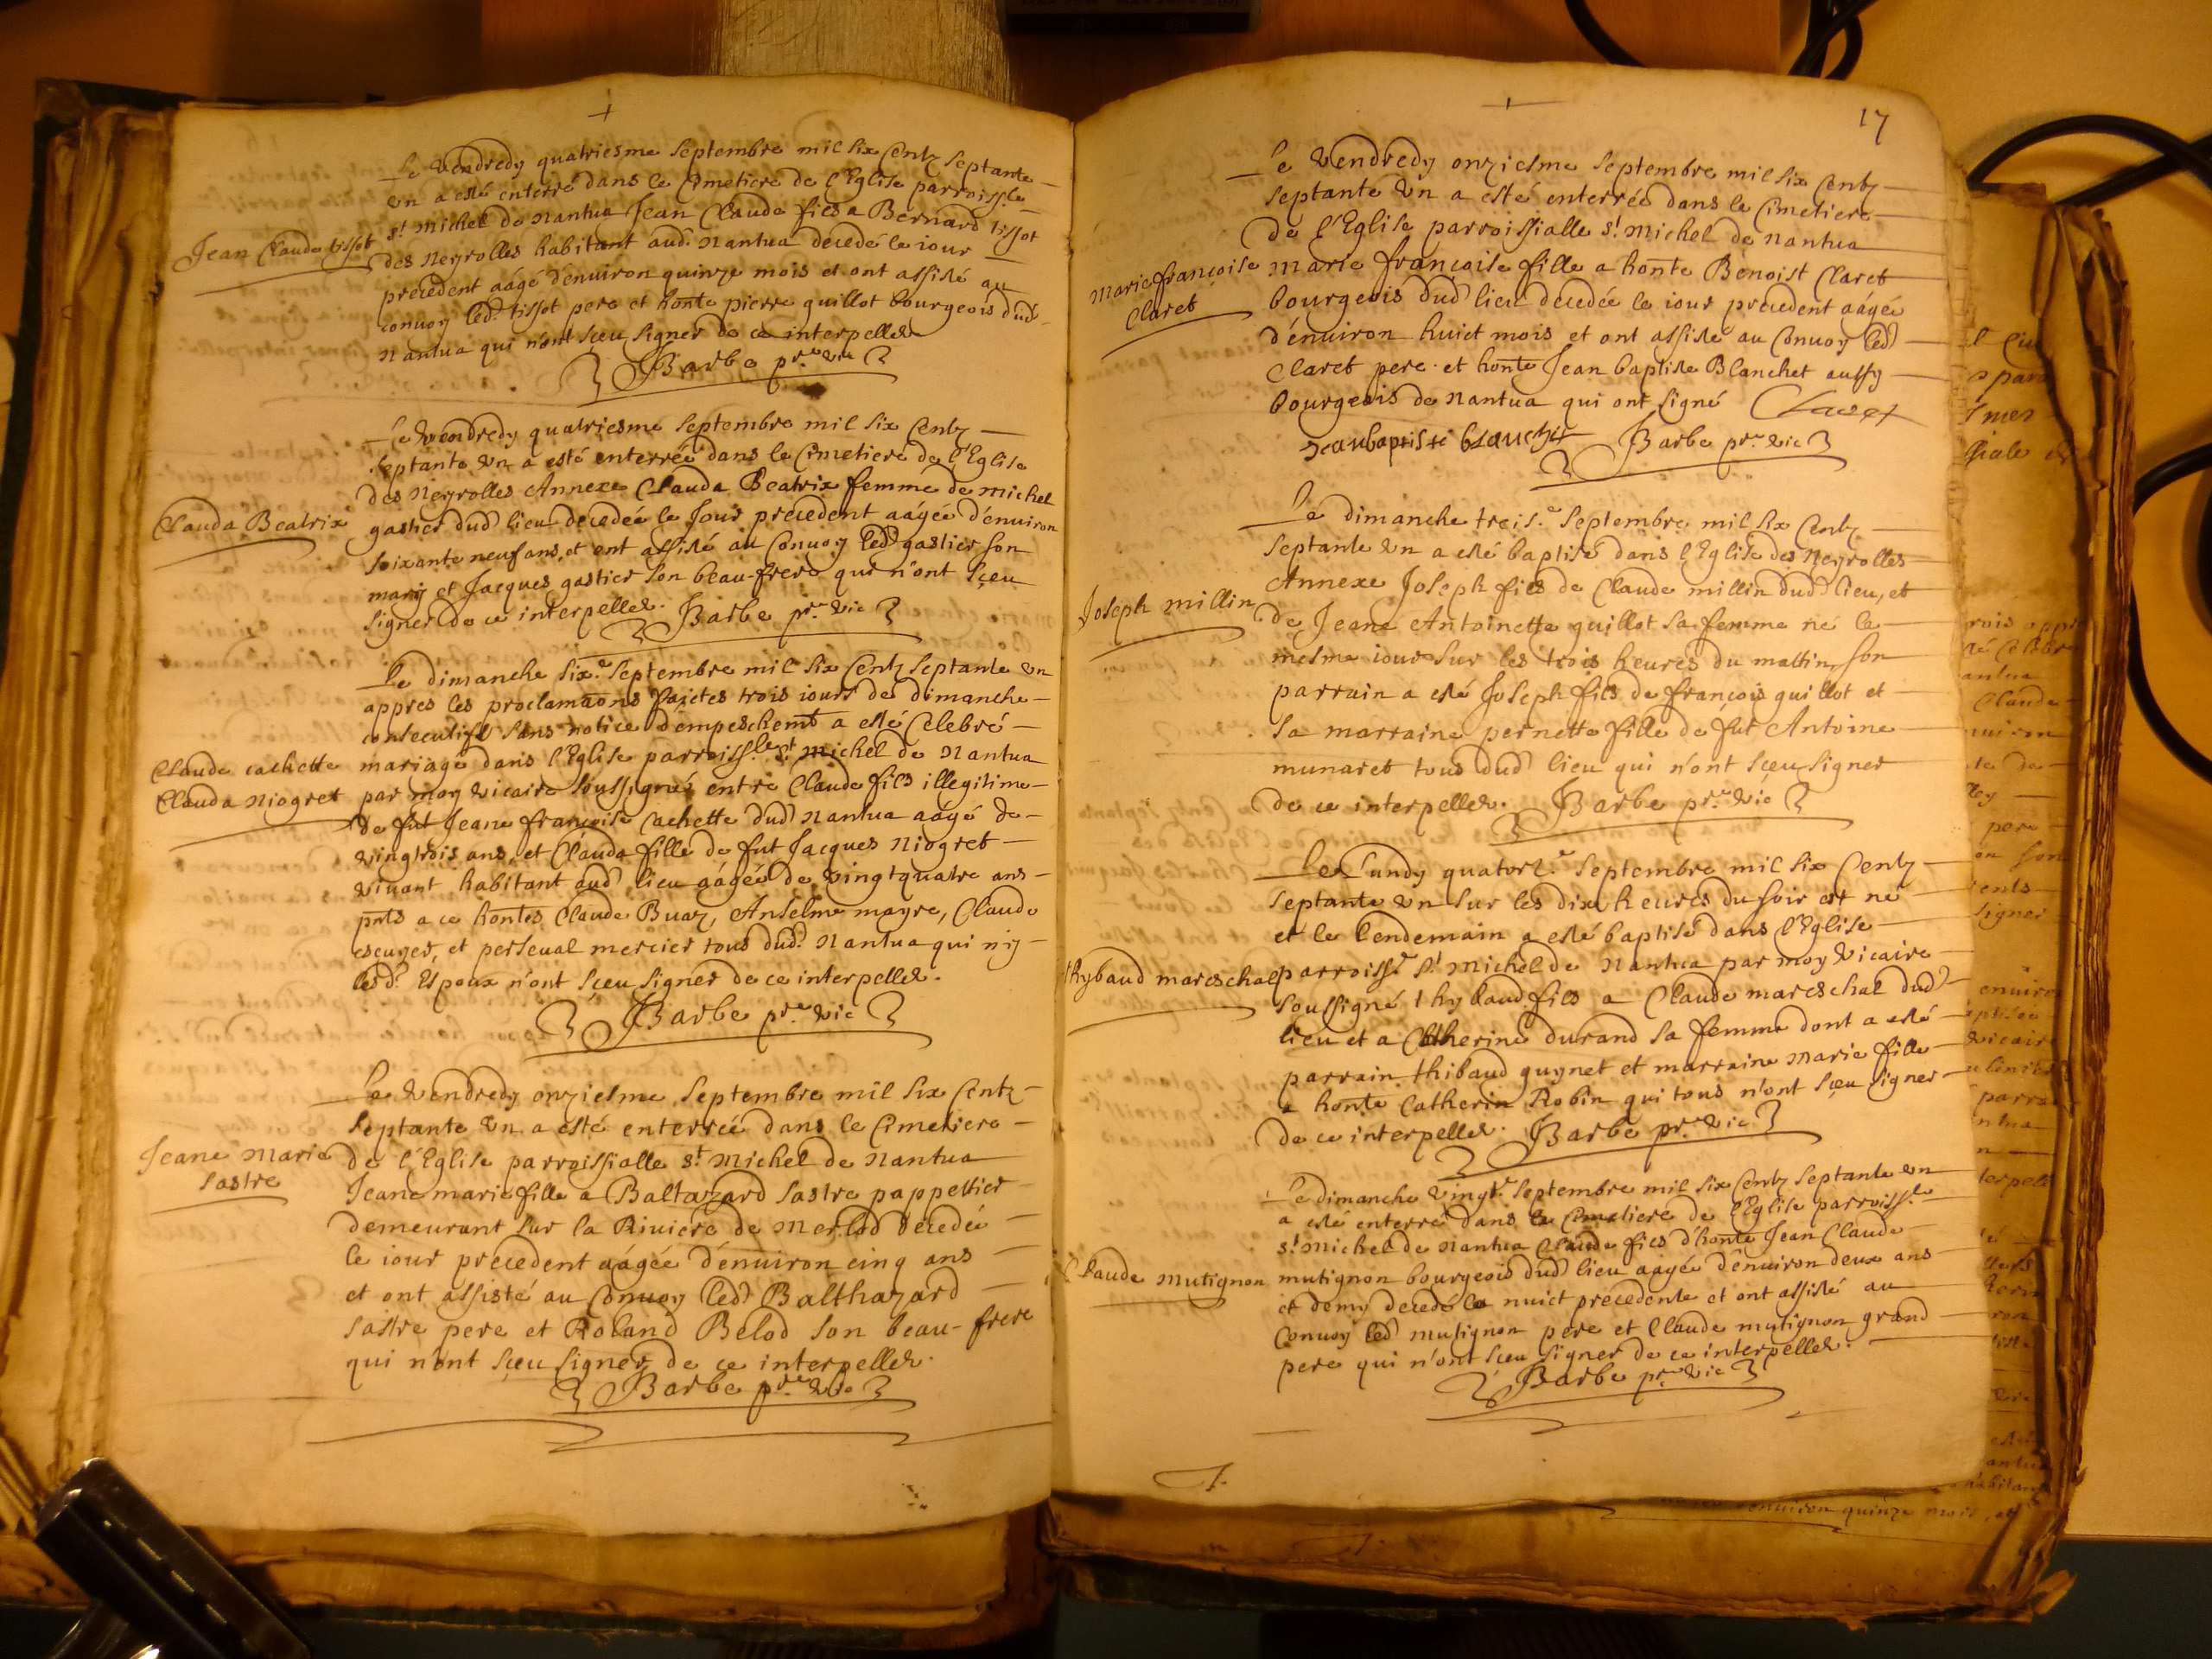 Le Vendredy quatriesme Septembre mil six Centz Septante
vn a esté enterré dans le Cimetiere de l'Eglise parroiss.le
Jean Claude tissot
st Michel de Nantua Jean Claude fils a Bernard tissot
des Neyrolles habitant aud. Nantua decedé le iour
precedent aágé d'enuiron quinze mois et ont assisté au
conuoy led. tissot pere et honte pierre guillot bourgeois dud.
Nantua qui n'ont sçeu signer de ce interpellez
Barbe pre vic
Le Vendredy quatriesme Septembre mil six Centz
Septante vn a esté enterrée dans le Cimetiere de l'Eglise
des Neyrolles Annexe Clauda Beatrix femme de Michel
Clauda Beatrix
gastier dud lieu decedée le Jour precedent aágée d'enuiron
soixante neuf ans, et ont assisté au Conuoy led gastier son
mary et Jacques gastier son beau-frere qui n'ont sçeu
signer de ce interpellez. Barbe pre vic
Le dimanche six.e Septembre mil six Centz Septante vn
appres les proclamaons faictes trois iours de dimanche
consecutifz sans notice d'empeschemt a esté Celebré
Claude cachette
mariage dans l'Eglise parroiss.le st Michel de Nantua
Clauda Niogret
par moy vicaire soussigné entre Claude fils illegitime
de fut Jeane françoise Cachette dud Nantua aágé de
vingtrois ans, et Clauda fille de fut Jacques Niogret
viuant habitant aud lieu aágée de vingtquatre ans
pnts a ce hontes Claude Buaz, Anselme mayre, Claude
escuyer, et perseual mercier tous dud. Nantua qui n'y
lesd. Espoux n'ont sçeu signer de ce interpellez.
Barbe pre vic
Le Vendredy onziesme Septembre mil six Centz
Septante vn a esté enterrée dans le Cimetiere
Jeane Marie
Sastre
de l'Eglise parroissialle st Michel de Nantua
Jeane marie fille a Baltazard Sastre pappettier
demeurant sur la Riviere de Merlod decedée
le iour precedent aágée d'enuiron cinq ans
et ont assisté au Conuoy led Balthazard
Sastre pere et Roland Belod son beau-frere
qui n'ont sçeu signer de ce interpellez.
Barbe pre vic
17
Le Vendredy onziesme Septembre mil six Centz
Septante vn a esté enterrée dans le Cimetiere
de l'Eglise parroissialle st Michel de Nantua
Marie françoise
Claret
Marie françoise fille a honte Benoist Claret
bourgeois dud lieu decedée le iour precedent aágée
d'énuiron huict mois et ont assisté au Conuoy led
Claret pere et honte Jean baptiste Blanchet aussy
bourgeois de Nantua qui ont signé Claret
Jean baptiste blanchet Barbe pre vic
Le dimanche treis.e Septembre mil six Centz
Septante vn a esté baptisé dans l'Eglise des Neyrolles
Joseph Millin
Annexe Joseph fils de Claude millin dud lieu, et
de Jeane Antoinette guillot sa femme né le
mesme iour sur les trois heures du mattin, son
parrain a esté Joseph fils de françois guillot et
sa marraine pernette fille de fut Antoine
munaret tous dud lieu qui n'ont sçeu signer
de ce interpellez. Barbe pre vic
Le Lundy quatorz.e Septembre mil six Centz
Septante vn sur les dix heures du soir est né
et le lendemain a esté baptisé dans l'Eglise
thybaud mareschal
parroiss.e st Michel de Nantua par moy vicaire
soussigné thybaud fils a Claude mareschal dud
lieu et a Catherine durand sa femme dont a esté
parrain thibaud guynet et marraine Marie fille
a honte Catherin Robin qui tous n'ont sçeu signer
de ce interpellez. Barbe pre vic
Le dimanche vingt.e Septembre mil six Centz Septante vn
a esté enterré dans le Cimetiere de l'Eglise parroiss.le
st Michel de Nantua Claude fils d'honte Jean Claude
Claude Mutignon
mutignon bourgeois dud lieu aagée d'enuiron deux ans
et demy decedé la nuict precedente et ont assisté au
Conuoy led mutignon pere et Claude mutignon grand
pere qui n'ont sçeu signer de ce interpellez.
Barbe pre vic
enuiron quinze mois, et